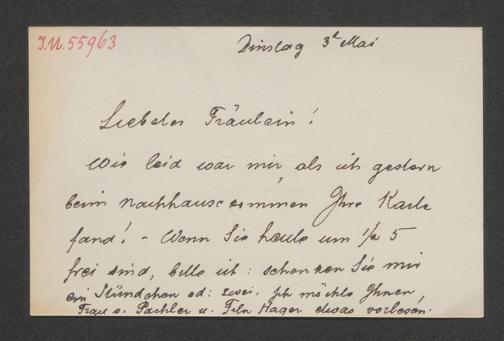 I.N. 55963
Dinstag 3ᵗ Mai
Liebes Fräulein!
Wie leid war mir, als ich gestern
beim nachhausekommen Ihre Karte
fand! – Wenn Sie heute um 1/2 5
frei sind, bitte ich: schenken Sie mir
ein Stündchen od: zwei. Ich möchte Ihnen,
Frau v. Pachler u. Frln Hager etwas vorlesen.